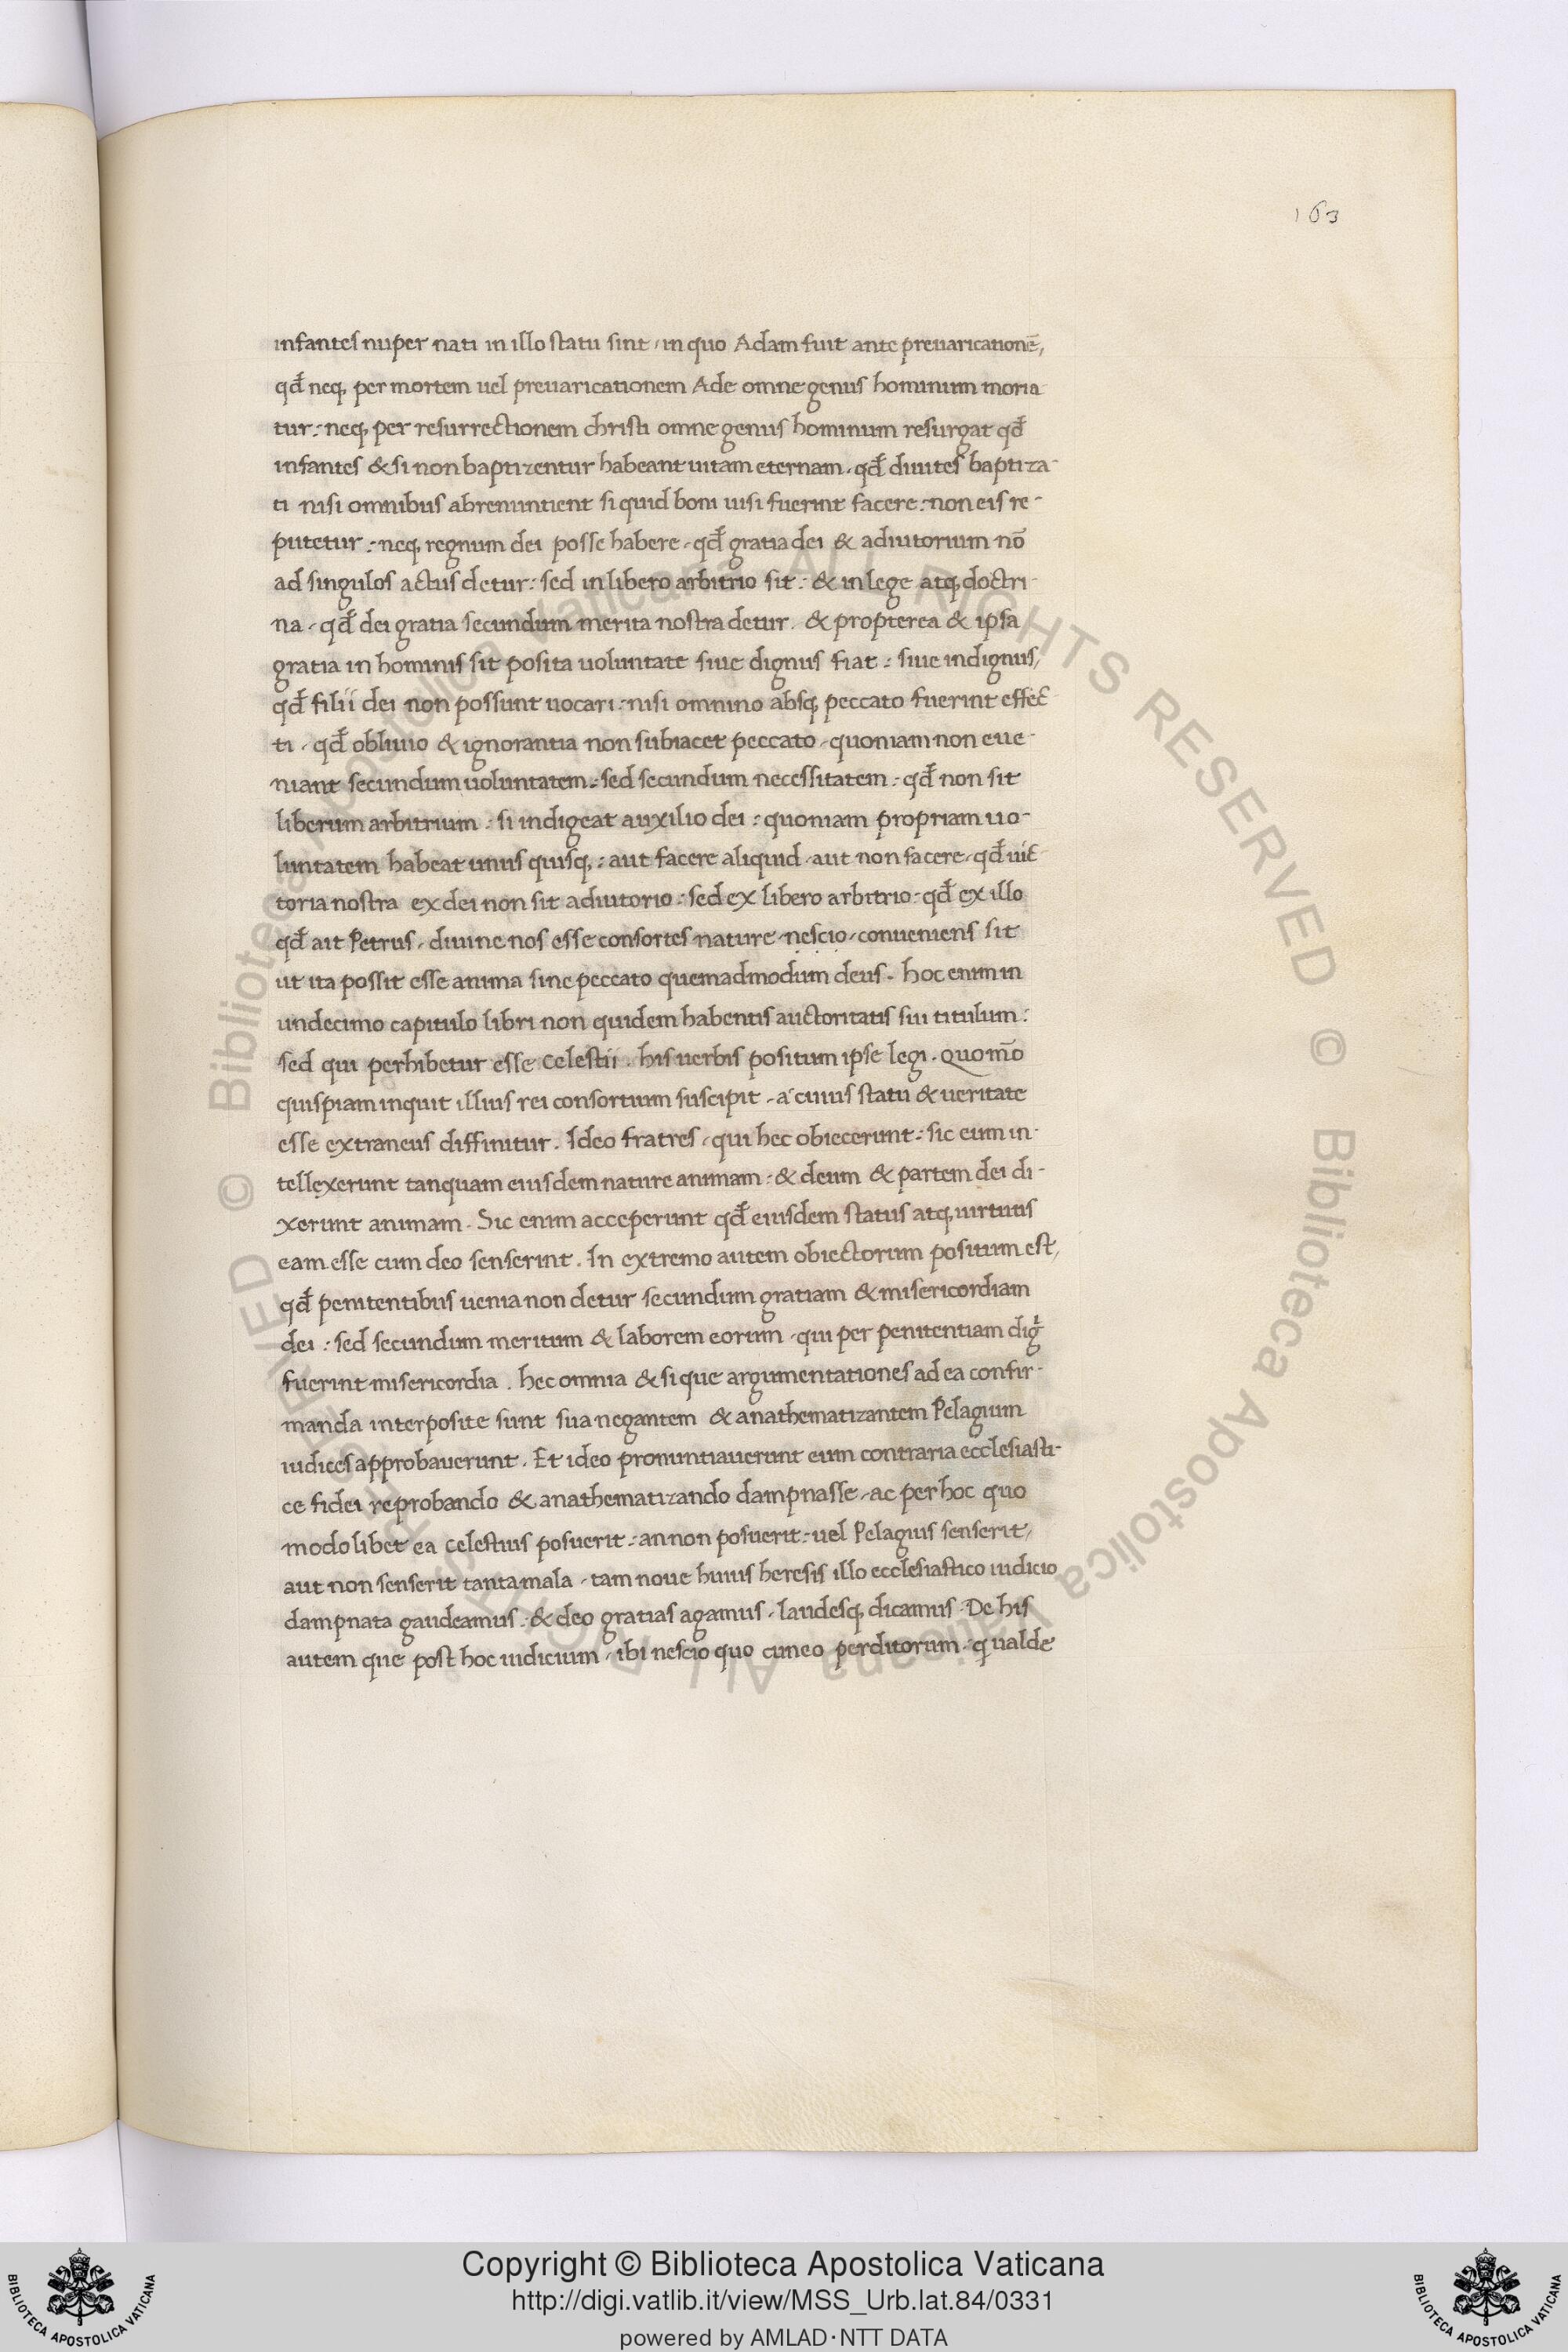 163
infantes nuper nati in illo statu sint / in quo Adam fuit ante preuaricationē,
qđ neq, per mortem uel preuaricationem Ade omne genus hominum moria
tur : neq, per resurrectionem christi omne genus hominum resurgat qđ
infantes & si non baptizentur habeant uitam eternam . qđ diuites baptiza-
ti nisi omnibus abrenuntient si quid boni uisi fuerint facere : non eis re-
putetur : neq, regnum dei posse habere . qđ gratia dei & adiutorium nō
ad singulos actus detur : sed in libero arbitrio sit : & in lege atq, doctri-
na . qđ dei gratia secundum merita nostra detur . & propterea & ipsa
gratia in hominis sit posita uoluntate siue dignus fiat : siue indignus,
qđ filii dei non possunt uocari : nisi omnino absq, peccato fuerint effec-
ti . qđ obliuio & ignorantia non subiacet peccato . quoniam non eue-
niant secundum uoluntatem : sed secundum necessitatem : qđ non sit
liberum arbitrium : si indigeat auxilio dei : quoniam propriam uo-
luntatem habeat unus quisq, : aut facere aliquid . aut non facere . qđ uic-
toria nostra ex dei non sit adiutorio : sed ex libero arbitrio . qđ ex illo
qđ ait Petrus . diuine nos esse consortes nature . nescio . conueniens sit
ut ita possit esse anima sine peccato quemadmodum deus . hoc enim in
undecimo capitulo libri non quidem habentis auctoritatis sui titulum :
sed qui perhibetur esse Celestii . his uerbis positum ipse legi . Quomō
quispiam inquit illius rei consortium suscipit . a cuius statu & ueritate
esse extraneus diffinitur . Ideo fratres . qui hec obiecerunt : sic eum in-
tellexerunt tanquam eiusdem nature animam : & deum & partem dei di-
xerunt animam . Sic enim acceperunt qđ eiusdem status atq, uirtutis
eam esse cum deo senserint . In extremo autem obiectorum positum est,
qđ penitentibus uenia non detur secundum gratiam & misericordiam
dei : sed secundum meritum & laborem eorum . qui per penitentiam digͥ
fuerint misericordia . hec omnia & si que argumentationes ad ea confir-
manda interposite sunt sua negantem & anathematizantem Pelagium
iudices approbauerunt . Et ideo pronuntiauerunt eum contraria ecclesiasti-
ce fidei reprobando & anathematizando dampnasse . ac per hoc quo
modo libet ea Celestius posuerit : an non posuerit : uel Pelagius senserit,
aut non senserit tanta mala . tam noue huius heresis illo ecclesiastico iudicio
dampnata gaudeamus : & deo gratias agamus . laudesq, dicamus . De his
autem que post hoc iudicium . ibi nescio quo cuneo perditorum . q ualde
© Biblioteca Apostolica Vaticana ALL RIGHTS RESERVED © Biblioteca Apostolica Vaticana ALL RIGHTS RESERVED
Copyright © Biblioteca Apostolica Vaticana
http://digi.vatlib.it/view/MSS_Urb.lat.84/0331
powered by AMLAD·NTT DATA
BIBLIOTECA APOSTOLICA VATICANA
BIBLIOTECA APOSTOLICA VATICANA